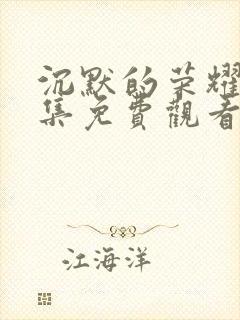 沉默的荣耀
集免費觀看
江海洋